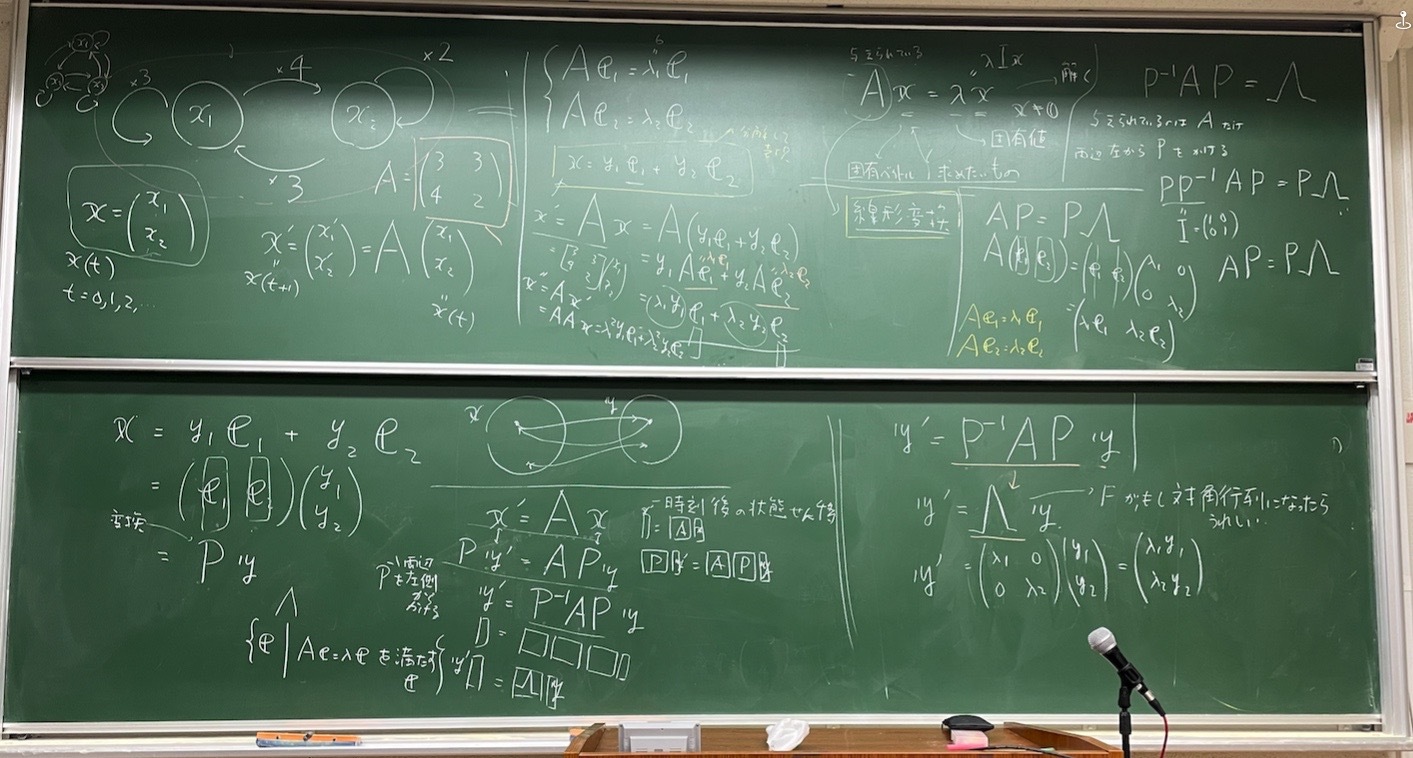 ×3
x₁
×4
x₂
×2
×3
𝕩 = (x₁ x₂)
x(t)
t=0,1,2,...
A = (3 3
4 2)
𝕩' = (x₁' x₂') = A (x₁ x₂)
x(t+1)
x(t)
A𝕖₁ = λ₁𝕖₁
A𝕖₂ = λ₂𝕖₂
𝕩 = y₁𝕖₁ + y₂𝕖₂
𝕩' = A𝕩 = A(y₁𝕖₁ + y₂𝕖₂)
= y₁A𝕖₁ + y₂A𝕖₂
= λ₁y₁𝕖₁ + λ₂y₂𝕖₂
𝕩'' = A𝕩'
= AA𝕩 = λ₁²y₁𝕖₁ + λ₂²y₂𝕖₂
与えられている
λI𝕩
解く
A𝕩 = λ𝕩
𝕩≠0
固有値
固有ベクトル 求めたいもの
線形変換
P⁻¹AP = Λ
与えられているのは A だけ
両辺左から P をかける
PP⁻¹AP = PΛ
I = (1 0 0 1)
AP = PΛ
AP = PΛ
A(𝕖₁ 𝕖₂) = (𝕖₁ 𝕖₂)(λ₁ 0
0 λ₂)
= (λ₁𝕖₁ λ₂𝕖₂)
A𝕖₁ = λ₁𝕖₁
A𝕖₂ = λ₂𝕖₂
𝕩 = y₁𝕖₁ + y₂𝕖₂
= (𝕖₁ 𝕖₂)(y₁ y₂)
変換
= P𝕪
Λ
{𝕖 | A𝕖 = λ𝕖 を満たす
𝕖}
𝕩
𝕪
𝕩' = A𝕩
一時刻後の状態
P𝕪' = AP𝕪
P⁻¹を両辺
左側
から
かける
𝕪' = P⁻¹AP𝕪
P 𝕪' = A P 𝕪
𝕪' = Λ 𝕪
𝕪' = P⁻¹AP𝕪
𝕪' = Λ𝕪
がもし対角行列になったら
うれしい...
𝕪' = (λ₁ 0
0 λ₂)(y₁ y₂) = (λ₁y₁ λ₂y₂)